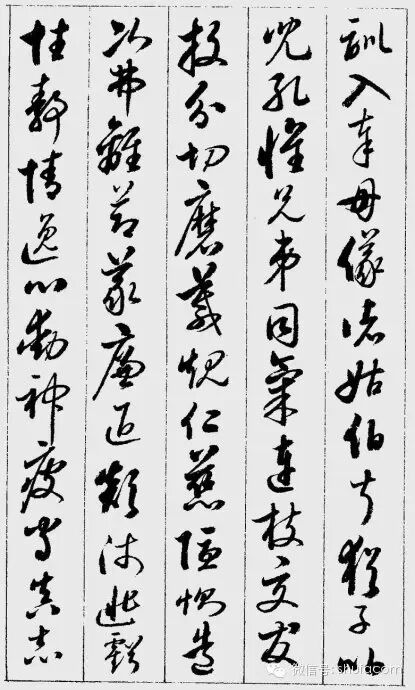 訓入奉母儀諸姑伯叔猶子比
兒孔懷兄弟同氣連枝交友
投分切磨箴規仁慈隱惻造
次弗離節義廉退顛沛匪虧
性靜情逸心動神疲守真志
微信号: shufacom